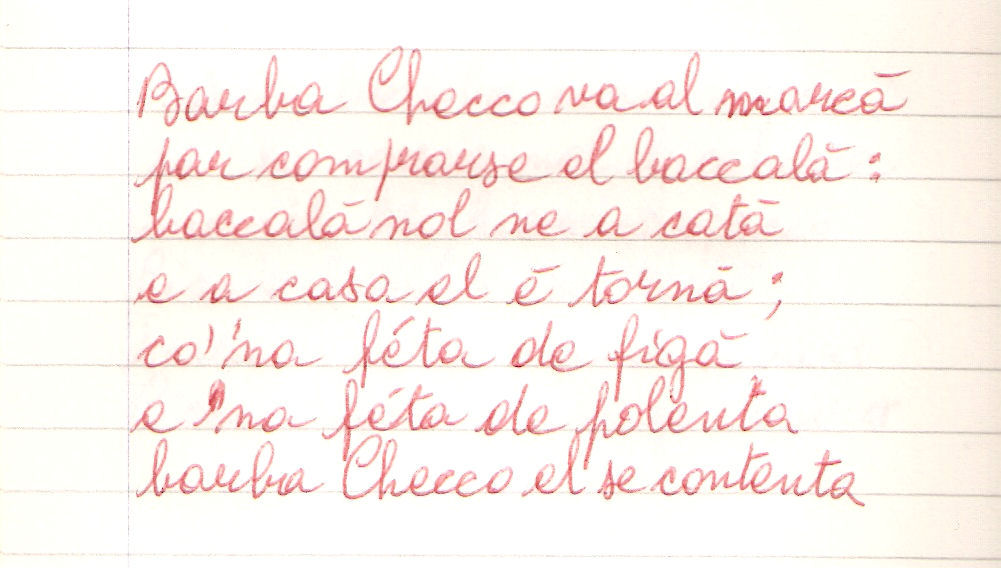 Barba Checco va al marcā
par comprarse el baccalā:
baccalā nol ne a catā
e a casa el ē tornā;
co' 'na féta de figā
e 'na féta de polenta
barba Checco el se contenta